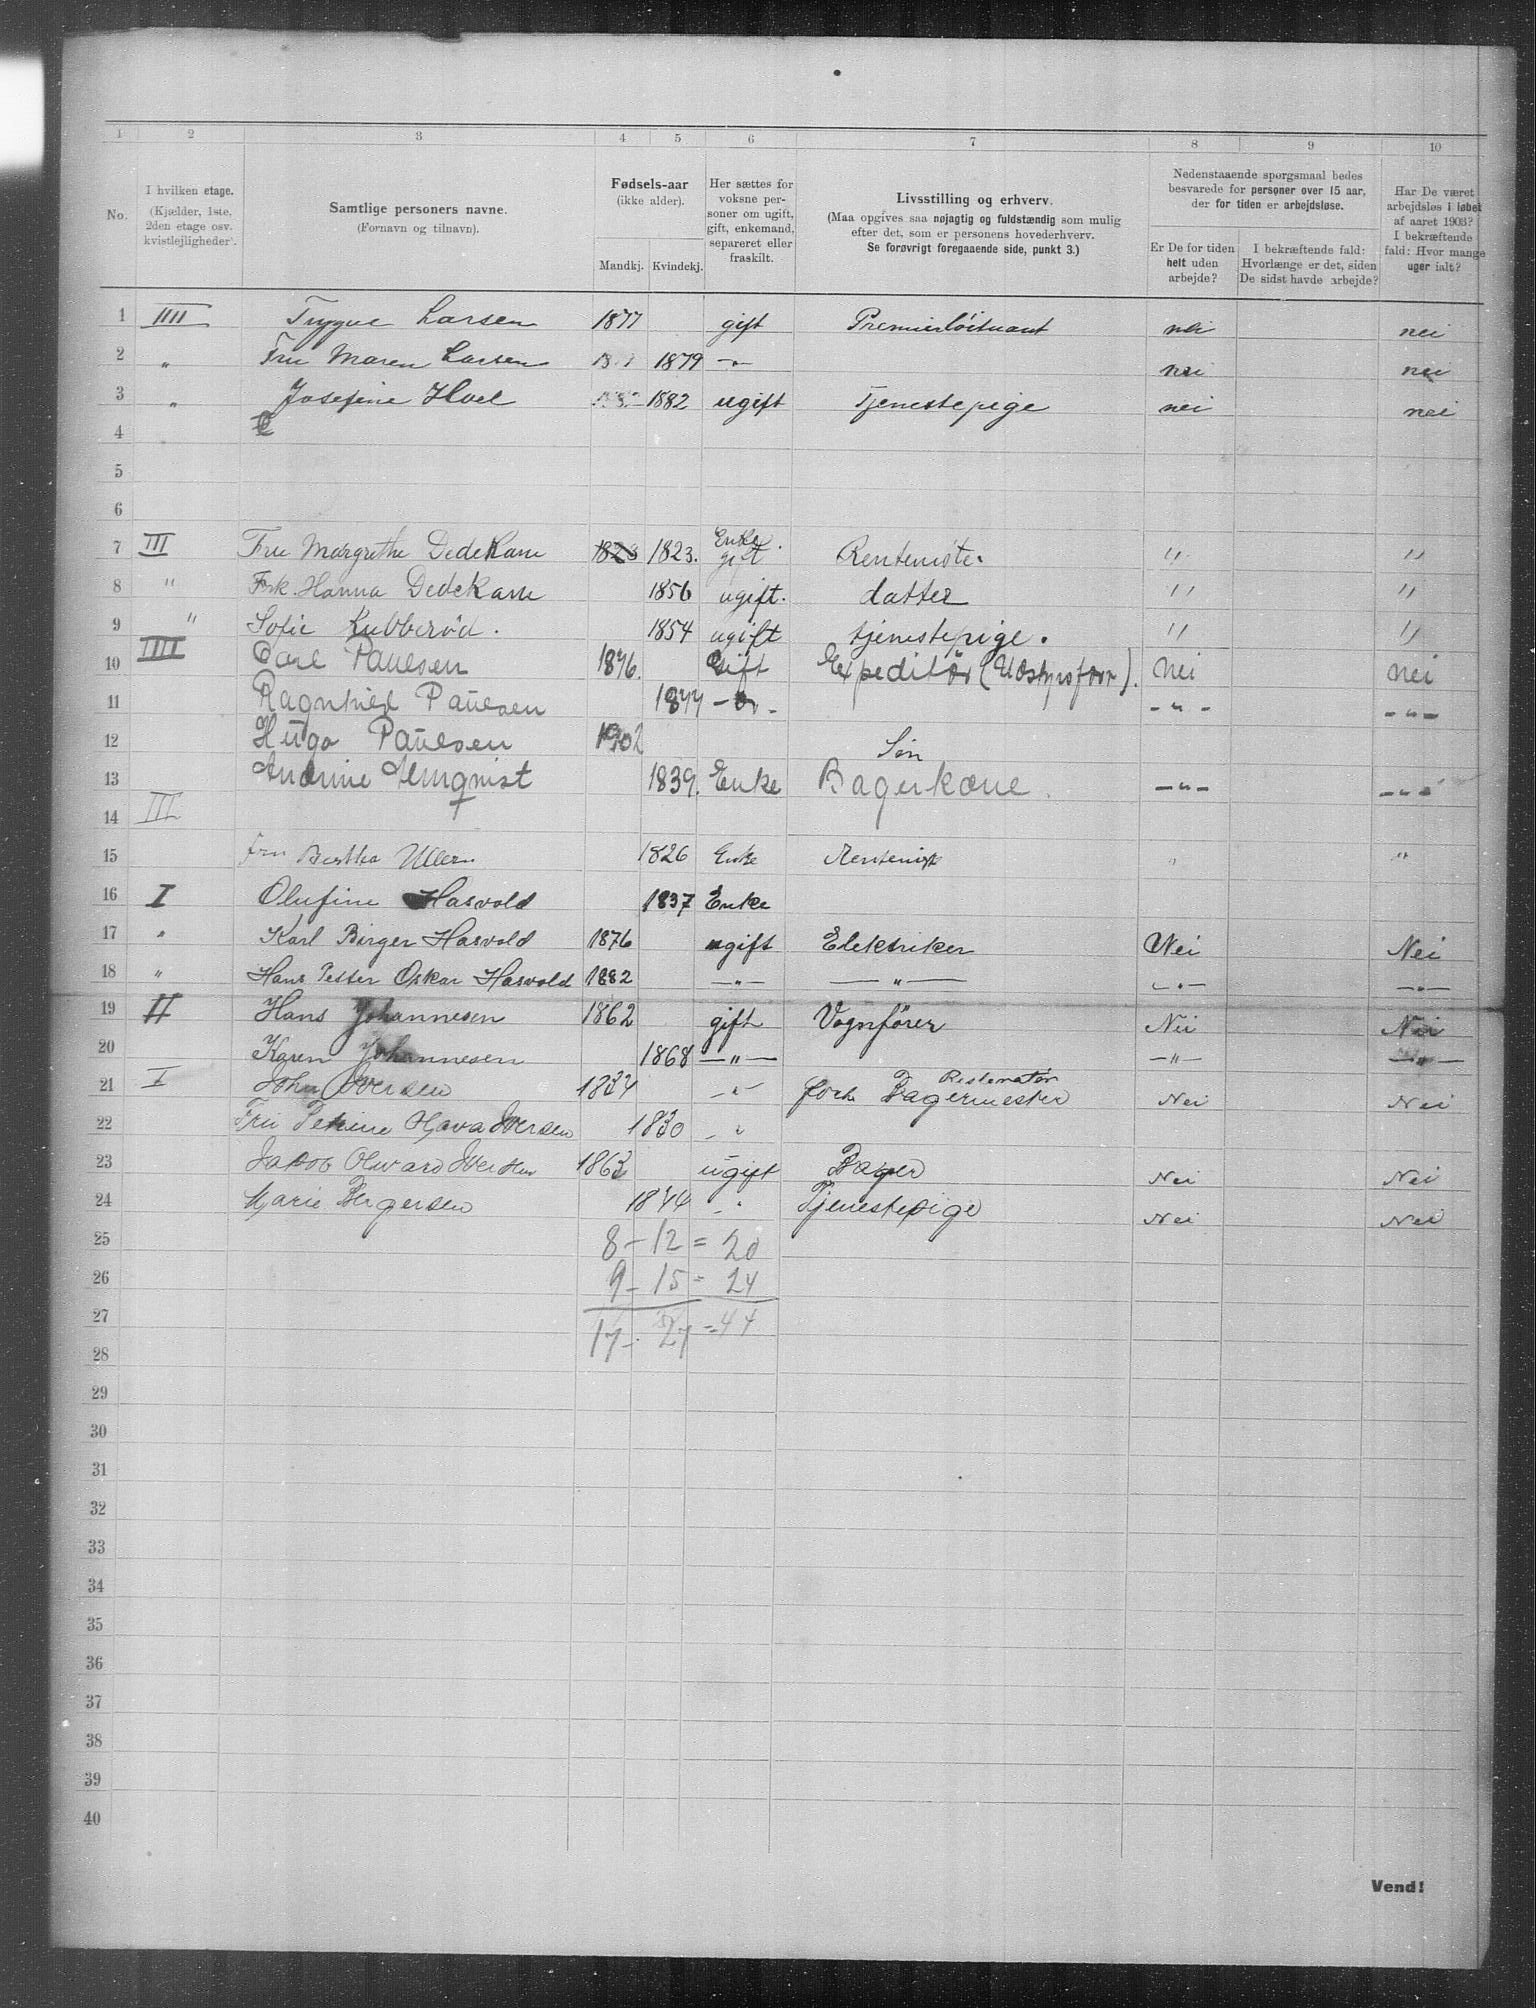 1 2 3 4 5 6 7 8 9 10
No.
I hvilken etage.
(Kjælder, 1ste,
2den etage osv.
kvistlejligheder).
Samtlige personers navne.
(Fornavn og tilnavn).
Fødsels-aar
(ikke alder).
Mandkj. Kvindekj.
Her sættes for
voksne per-
soner om ugift,
gift, enkemand,
separeret eller
fraskilt.
Livsstilling og erhverv.
(Maa opgives saa nøjagtig og fuldstændig som mulig
efter det, som er personens hovederhverv.
Se forøvrigt foregaaende side, punkt 3.)
Nedenstaaende spørgsmaal bedes
besvarede for personer over 15 aar,
der for tiden er arbejdsløse.
Er De for tiden
helt uden
arbejde?
I bekræftende fald:
Hvorlænge er det, siden
De sidst havde arbejde?
Har De været
arbejdsløs i løbet
af aaret 1903?
I bekræftende
fald: Hvor mange
uger ialt?
1 IIII Trygve Larsen 1877 gift Premierløitnant nei nei
2 " Fru Maren Larsen 1879 -"- nei nei
3 " Josefine Hoel 1882 ugift Tjenestepige nei nei
4
5
6
7 III Fru Margrethe Dedekam 1823 1823. Enke gift Renteniste. " "
8 " Frk. Hanna Dedekam 1856 ugift. datter " "
9 " Sofie Kubberød. 1854 ugift tjenestepige. " "
10 IIII Carl Paulsen 1876. Gift Expeditør (Udstyrsforr). Nei nei
11 Ragnhild Paulsen 1877 -"- -"- -"-
12 Hugo Paulsen 1902 Søn
13 Andrine 1839. Enke Bagerkone. -"- -"-
14 III
15 Fru Bertha Ullern 1826 Enke Rentenist " "
16 I Olufine Hasvold 1837 Enke
17 " Karl Birger Hasvold 1876 ugift Elektriker Nei Nei
18 " Hans Petter Oskar Hasvold 1882 -"- -"- -"- -"-
19 II Hans Johannesen 1862 gift Vognfører Nei Nei
20 Karen Johannesen 1868 -"- -"- -"-
21 I John Iversen 1834 " forh. Bagermester Nei Nei
22 Fru Petrine Iversen 1830 "
23 Jakob Iversen 1863 ugift Bager Nei Nei
24 Marie Bergersen 1844 " Tjenestepige Nei Nei
25 8 - 12 = 20
26 9 - 15 = 24
27 17 - 27 = 44
28
29
30
31
32
33
34
35
36
37
38
39
40
Vend!